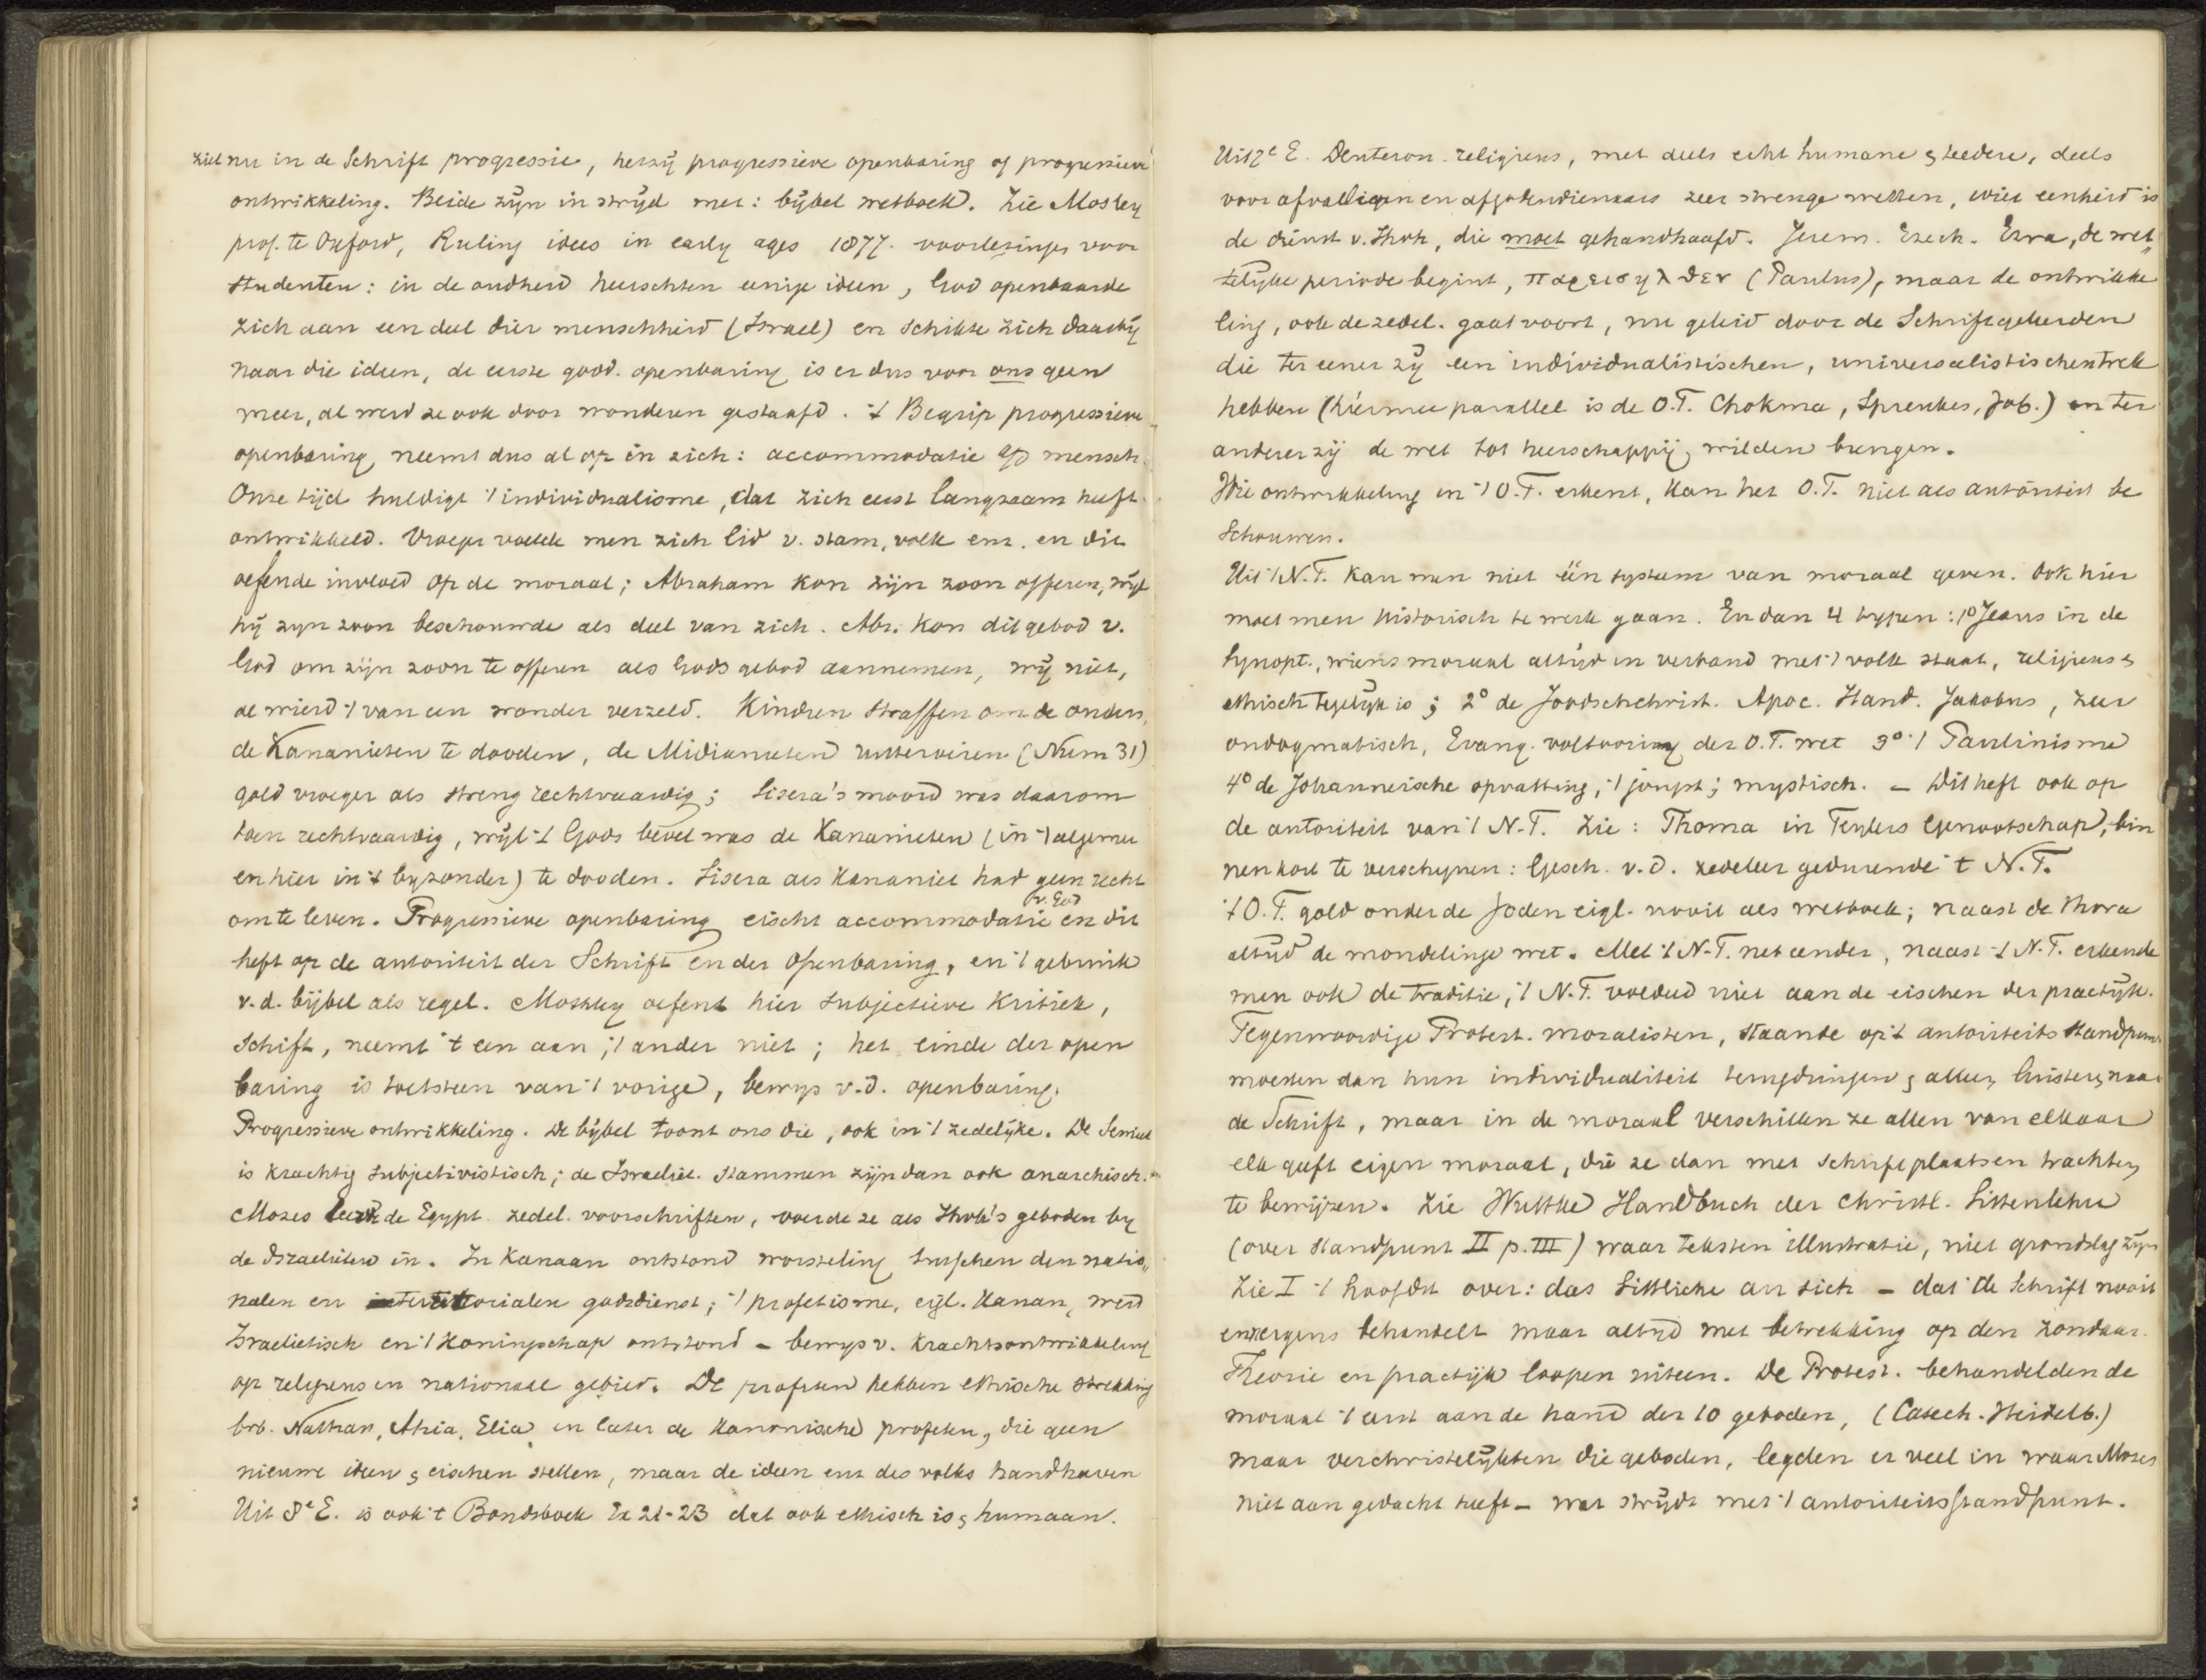 ziet nu in de Schrift progressie, hetzij progressieve openbaring of progressieve
ontwikkeling. Beide zijn in strijd met: bijbel wetboek. Zie Mosley
prof. te Oxford, Ruling idees in early ages 1877. voorlezingen voor
studenten: in de oudheid heerschten eenige ideen, God openbaarde
zich aan een deel dier menschheid (Israel) en schikte zich daarbij
naar die ideen, de eerste godd. openbaring is er dus voor ons geen
meer, al werd ze ook door wonderen gestaafd. 't Begrip progressieve
openbaring neemt dus al op in zich: accommodatie op mensch.
Onze tijd huldigt 't individualisme, dat zich eerst langzaam heeft
ontwikkeld. Vroeger voelde men zich lid v. stam, volk enz. en die
oefende invloed op de moraal; Abraham kon zijn zoon offeren, wijl
hij zijn zoon beschouwde als deel van zich. Abr. kon dit gebod v.
God om zijn zoon te offeren als Gods gebod aannemen, wij niet,
al wierd 't van een wonder verzeld. Kindren straffen om de ouders,
de Kananieten te dooden, de Midianieten uitteroeien (Num 31)
gold vroeger als streng rechtvaardig; Sisera's moord was daarom
toen rechtvaardig, wijl 't Gods bevel was de Kananieten (in 't algemeen
en hier in 't byzonder) te dooden. Sisera als Kananiet had geen recht
om te leven. Progressieve openbaring eischt accommodatie v. God en dit
heft op de autoriteit der Schrift en der Openbaring, en 't gebruik
v.d. bijbel als regel. Moskley oefent hier subjectieve kritiek,
schift, neemt 't een aan, 't ander niet; het einde der open
baring is toetsteen van 't vorige, bewijs v.d. openbaring.
Progressieve ontwikkeling. De bijbel toont ons die, ook in 't zedelijke. De Semiet
is krachtig subjectivistisch; de Israeliet. stammen zijn dan ook anarchisch.
Mozes leerde Egypt. zedel. voorschriften, voerde ze als Jhvh's geboden by
de Israelieten in. In Kanaan ontstond worsteling tusschen den natio„
nalen en territorialen godsdienst; 't profetisme, eigl. Kanan, werd
Israelietisch en 't Koningschap ontstond – bewijs v. krachtsontwikkeling
op religieus en nationaal gebied. De profeten hebben ethische strekking
bvb. Nathan, Ahia, Elia en later de Kanonische profeten, die geen
nieuwe ideen & eischen stellen, maar de ideen enz des volks handhaven
Uit 8e E. is ook 't Bondsboek Ex 21-23 dat ook ethisch is & humaan.
Uit 7e E. Deuteron. religieus, met deels echt humane & teedere, deels
voor afvalligen en afgodendienaars zeer strenge wetten, wier eenheid is
de dienst v. Jhvh, die moet gehandhaafd. Jerem. Ezech. Ezra, de wet„
telijke periode begint, παρεισηλθεν (Paulus), maar de ontwikke
ling, ook de zedel. gaat voort, nu geleid door de Schriftgeleerden
die ter eener zij een individualistischen, universalistischen trek
hebben (hiermee parallel is de O.T. Chokma, Spreuken, Job.) en ter
anderer zij de wet tot heerschappij wilden brengen.
Wie ontwikkeling in 't O.T. erkent, kan het O.T. niet als autoriteit be
schouwen.
Uit 't N.T. kan men niet één systeem van moraal geven. Ook hier
moet men historisch te werk gaan. En dan 4 typen: 1° Jezus in de
Synopt., wiens moraal altijd in verband met 't volk staat, religieus &
ethisch tegelijk is; 2° de Joodschchrist. Apoc. Hand. Jakobus, zeer
ondogmatisch, Evang. voltooiing der O.T. wet 3° 't Paulinisme
4° de Johanneische opvatting, 't jongst; mystisch. – Dit heft ook op
de autoriteit van 't N.T. Zie: Thoma in Teylers Genootschap, bin
nenkort te verschynen: Gesch. v.d. zedeleer gedurende 't N.T.
't O.T. gold onder de Joden eigl. nooit als wetboek; naast de Thora
altijd de mondelinge wet. Met 't N.T. net eender, naast 't N.T. erkende
men ook de traditie, 't N.T. voldeed niet aan de eischen der practijk.
Tegenwoordige Protest. moralisten, staande op 't autoriteits standpunt
moesten dan hun individualiteit terugdringen & alleen luisteren naar
de Schrift, maar in de moraal verschillen ze allen van elkaar
elk geeft eigen moraal, die ze dan met schriftplaatsen trachten
te bewijzen. Zie Wuttke Handbuch der Christl. Sittenlehre
(over standpunt II p. III) waar teksten illustratie, niet grondslag zijn
Zie I 't hoofdst over: das Sittliche an sich – dat de Schrift nooit
en nergens behandelt maar altijd met betrekking op den zondaar.
Theorie en practijk loopen uiteen. De Protest. behandelden de
moraal 't eerst aan de hand der 10 geboden, (Catech. Heidelb.)
maar verchristelijkten die geboden, legden er veel in waar Mozes
niet aan gedacht heeft – wat strijdt met 't autoriteitsstandpunt.